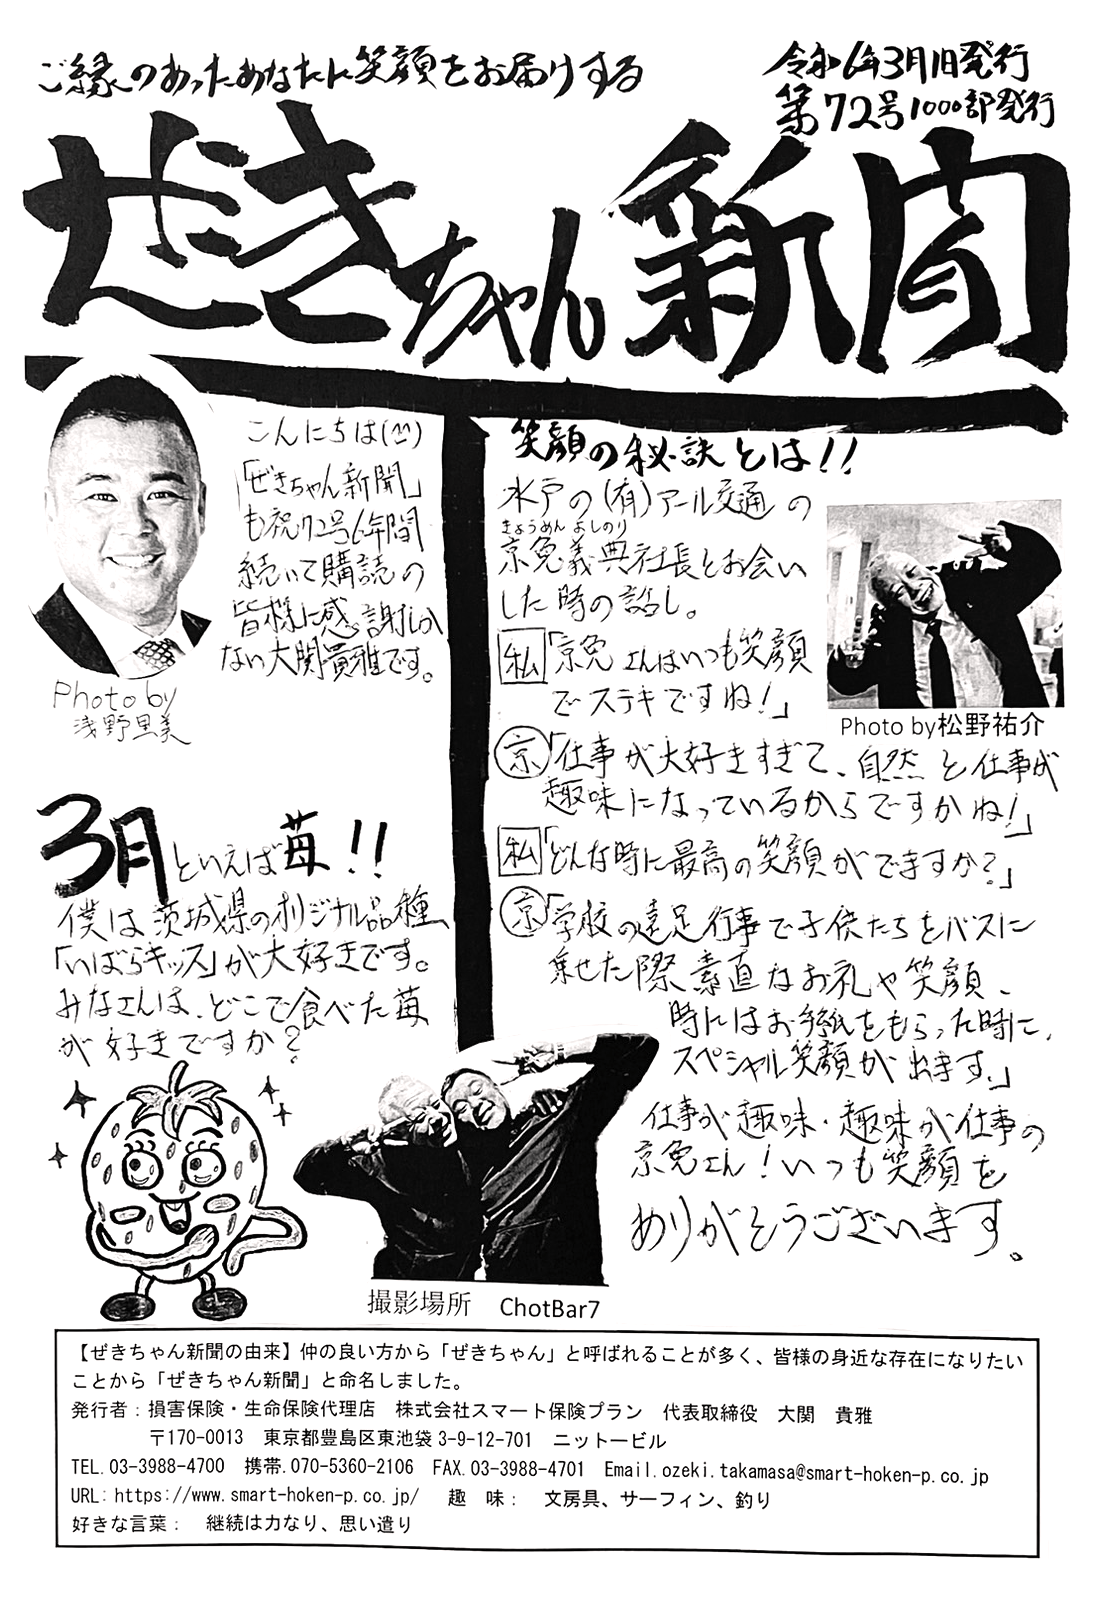 ご縁のあったあなたに笑顔をお届けする
令和6年3月1日発行
第72号1000部発行
ぜきちゃん新聞
こんにちは(^^)
「ぜきちゃん新聞」
も祝72号6年間
続いて購読の
皆様に感謝しか
ない大関貴雅です。
Photo by
浅野里美
3月といえば苺!!
僕は茨城県のオリジナル品種
「いばらキッス」が大好きです。
みなさんは、どこで食べた苺
が好きですか?
笑顔の秘訣とは!!
水戸の(有)アール交通の
きょうめん よしのり
京免義典社長とお会い
した時の話し。
私「京免さんはいつも笑顔
でステキですね!」
Photo by松野祐介
京「仕事が大好きすぎて、自然と仕事が
趣味になっているからですかね!」
私「どんな時に最高の笑顔がでますか?」
京「学校の遠足行事で子供たちをバスに
乗せた際、素直なお礼や笑顔、
時にはお手紙をもらった時に、
スペシャル笑顔が出ます。」
仕事が趣味・趣味が仕事の
京免さん!いつも笑顔を
ありがとうございます。
撮影場所 ChotBar7
【ぜきちゃん新聞の由来】仲の良い方から「ぜきちゃん」と呼ばれることが多く、皆様の身近な存在になりたい
ことから「ぜきちゃん新聞」と命名しました。
発行者:損害保険・生命保険代理店 株式会社スマート保険プラン 代表取締役 大関 貴雅
〒170-0013 東京都豊島区東池袋3-9-12-701 ニットービル
TEL.03-3988-4700 携帯.070-5360-2106 FAX.03-3988-4701 Email.ozeki.takamasa@smart-hoken-p.co.jp
URL:https://www.smart-hoken-p.co.jp/ 趣 味: 文房具、サーフィン、釣り
好きな言葉: 継続は力なり、思い遣り